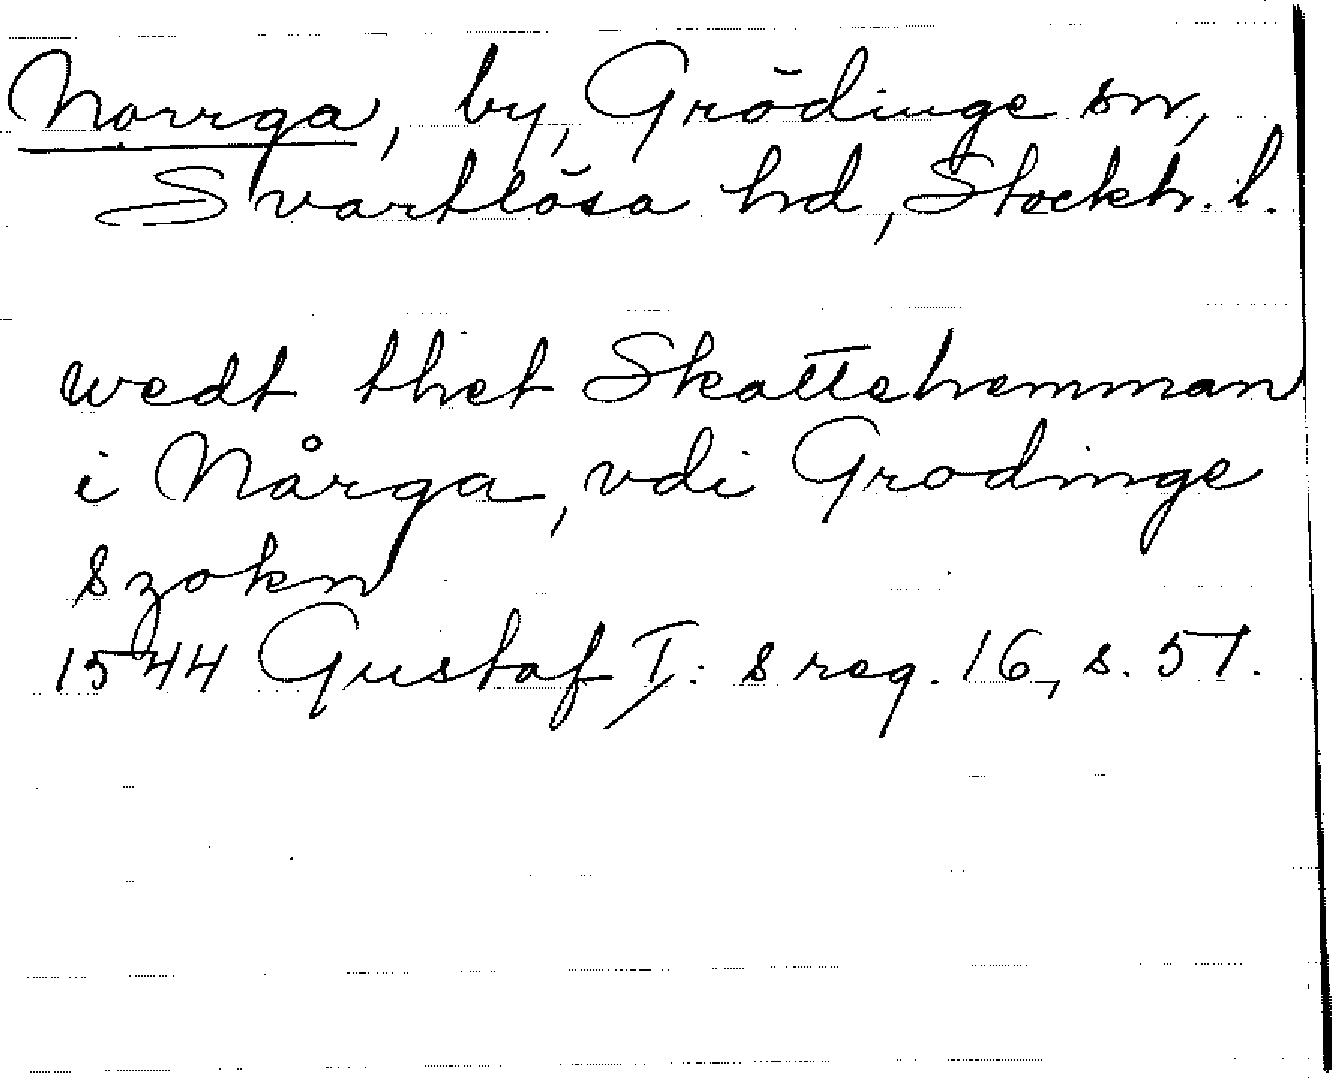 Norrga, by, Grödinge sn,
Svartlösa hd, Stockh. l.
wedt thet Skattehemman
i Nårga, vdi Grodinge
szokn
1544 Gustaf I: s reg. 16, s. 57.